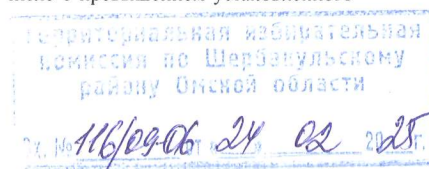 с превышением установленного
территориальная избирательная
комиссия по Шербакульскому
району Омской области
Вх. № 116/09-06 от «24» 02 2025г.